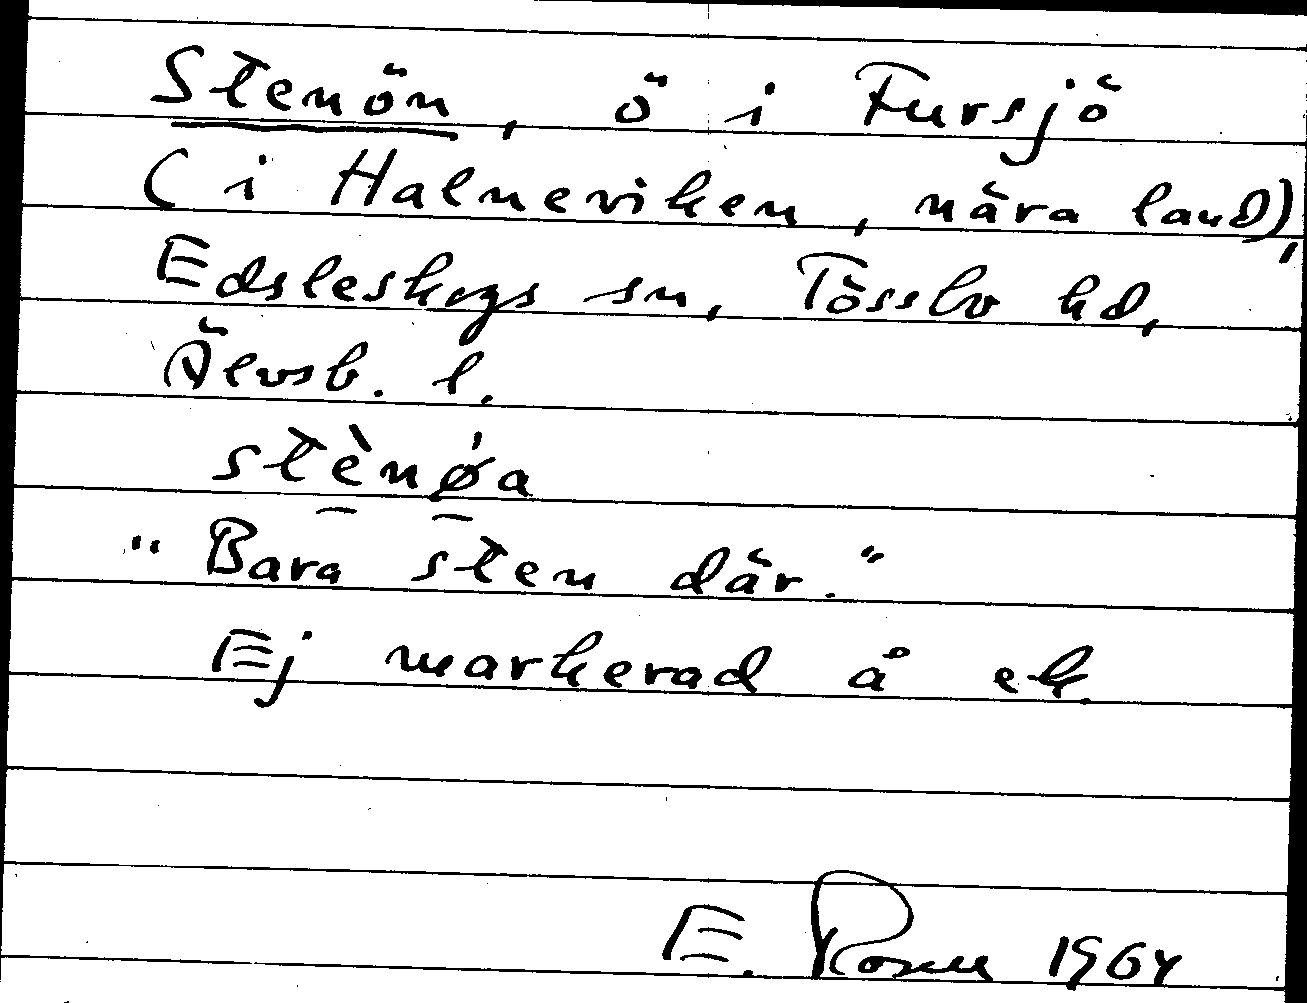 Stenön, ö i Fursjö
(i Halneviken, nära land),
Edsleskogs sn, Tössbo hd,
Älvsb. l.
stènǿa
"Bara sten där."
Ej markerad å ek.
E. 1964